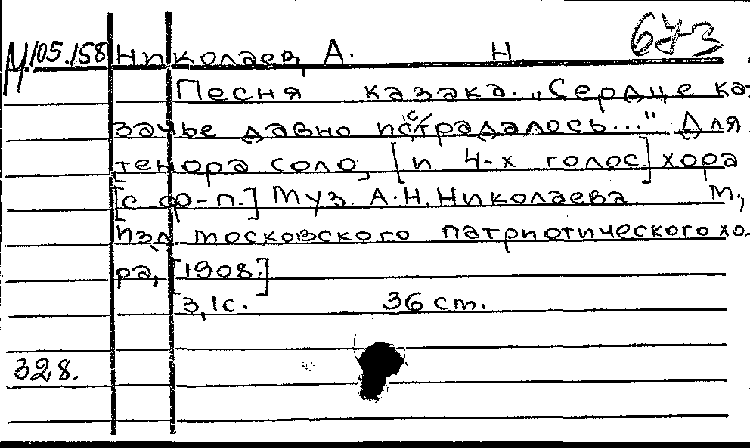 673
М.105.158 Николаев, А. Н
Песня казака. „Сердце ка-
зачье давно исстрадалось..." Для
тенора соло, [и 4-х голос] хора
[с ф-п.] Муз. А.Н. Николаева М.,
изд. Московского патриотического хо-
ра, [1908.]
3,1с. 36 см.
328.